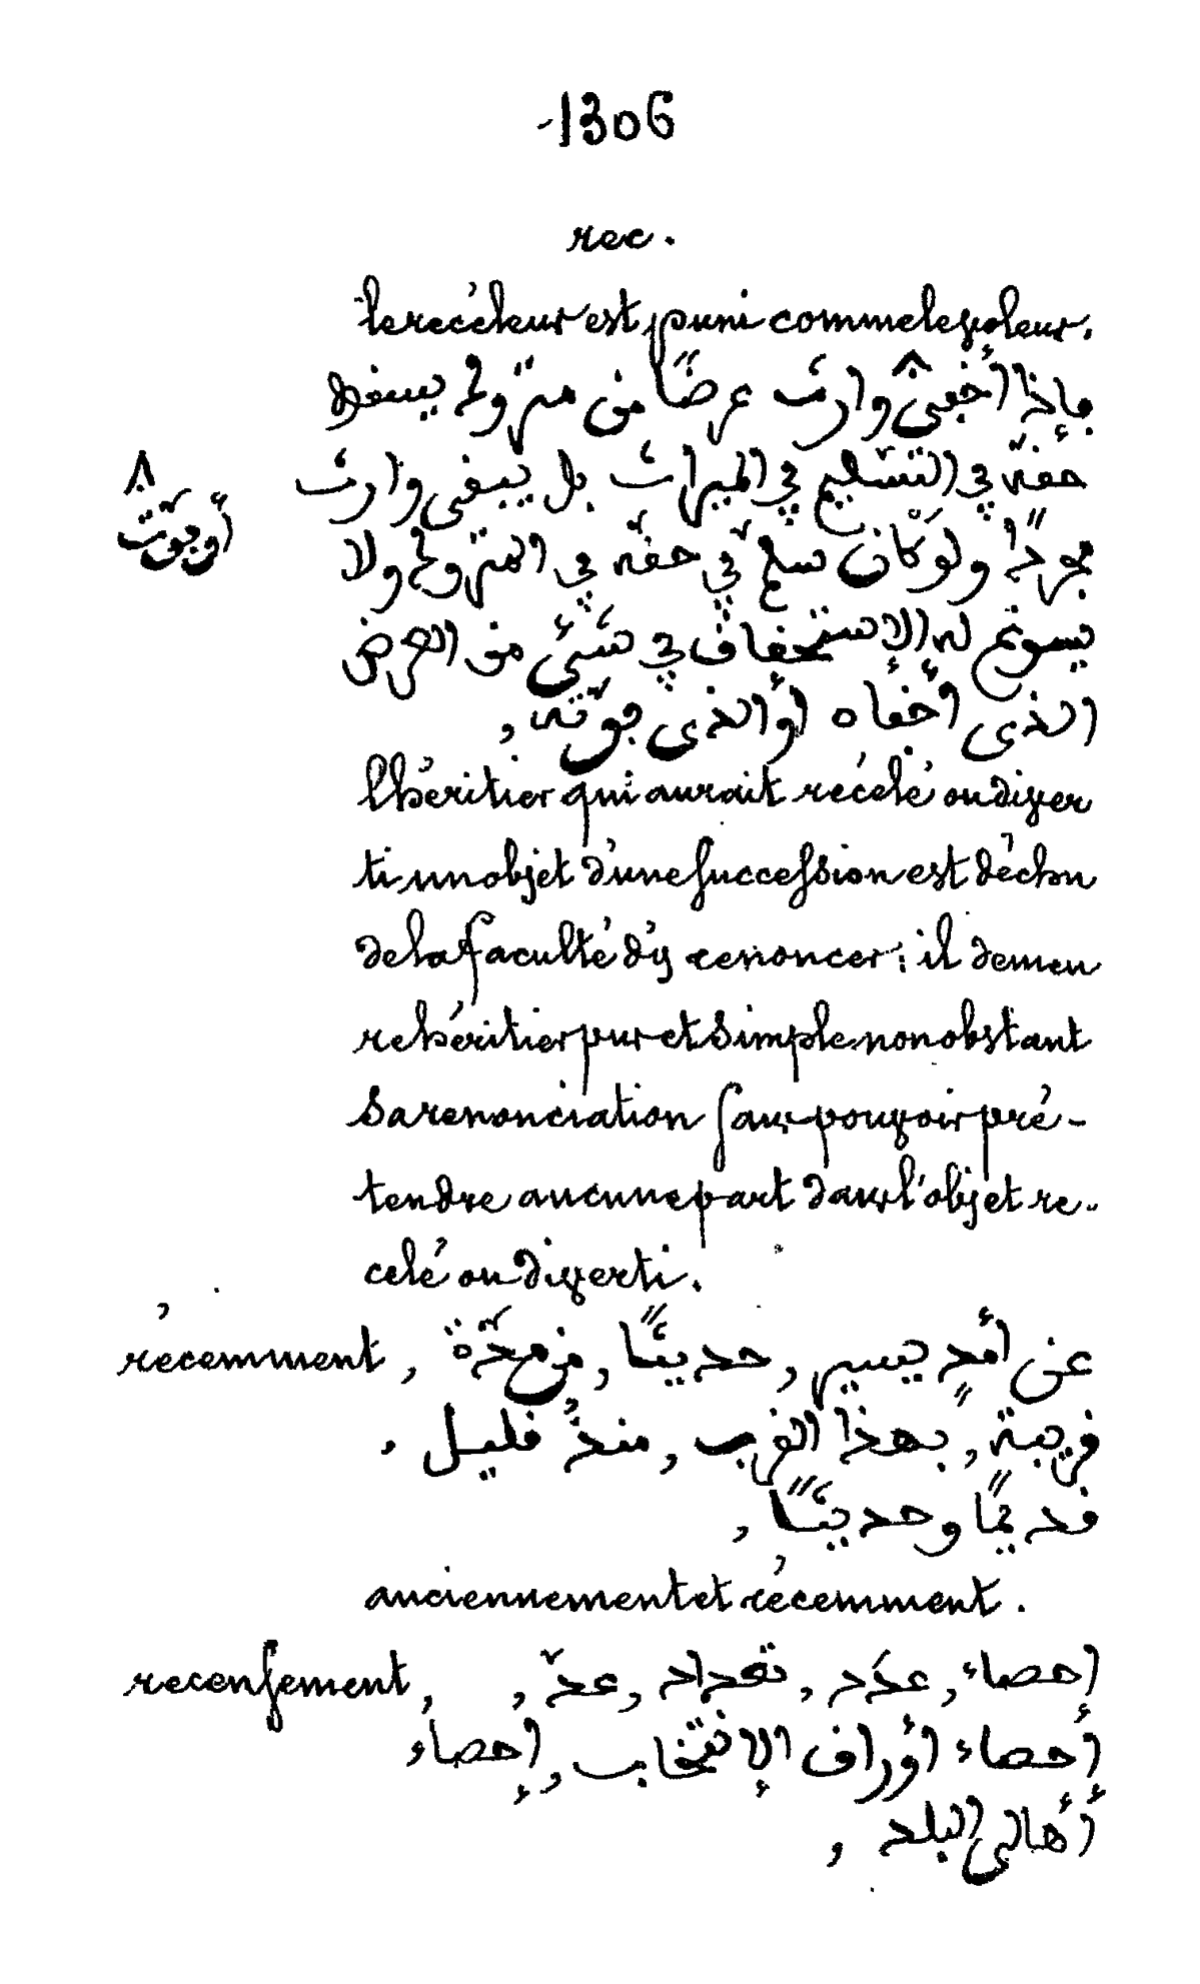 1306
rec.
le recéleur est puni comme le voleur.
فإذا أخفى وارث عرضًا من متروك يسقط
حقّه في التسليم في الميراث بل يبقى وارث
أو فوّت
مجردًا ولو كان سلّم في حقّه في المتروك ولا
يسوغ له الاستحقاق في شئ من العرض
الذى أخفأه أو الذى فوّته,
l'héritier qui aurait récelé ou diver
ti un objet d'une succession est déchu
de la faculté d'y renoncer: il demeu
re héritier pur et simple, nonobstant
sa renonciation sans pouvoir pré-
tendre aucune part dans l'objet re-
celé ou diverti.
récemment, عن أمد يسير, حديثًا, من مدّة
قريبة, بهذا القرب, منذُ قليل.
قديمًا وحديثًا,
anciennement et récemment.
recensement, إحصاء, عدَد, تعداد, عدّ,
إحصاء أوراق الإنتخاب, إحصاء
أهالى البلد,